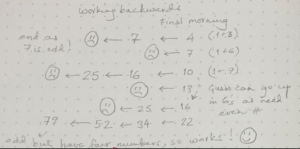 working backwards
Final morning
and as 7 is odd! ☹ ← 7 ← 4 (1+3)
☹ ← 7 (1+6)
☹ ← 25 ← 16 ← 10 (1+9)
☹ ← 13 Guess can go up in 3s as need even #
☹ ← 25 ← 16
79 ← 52 ← 34 ← 22
odd but have four numbers, so works! ☺